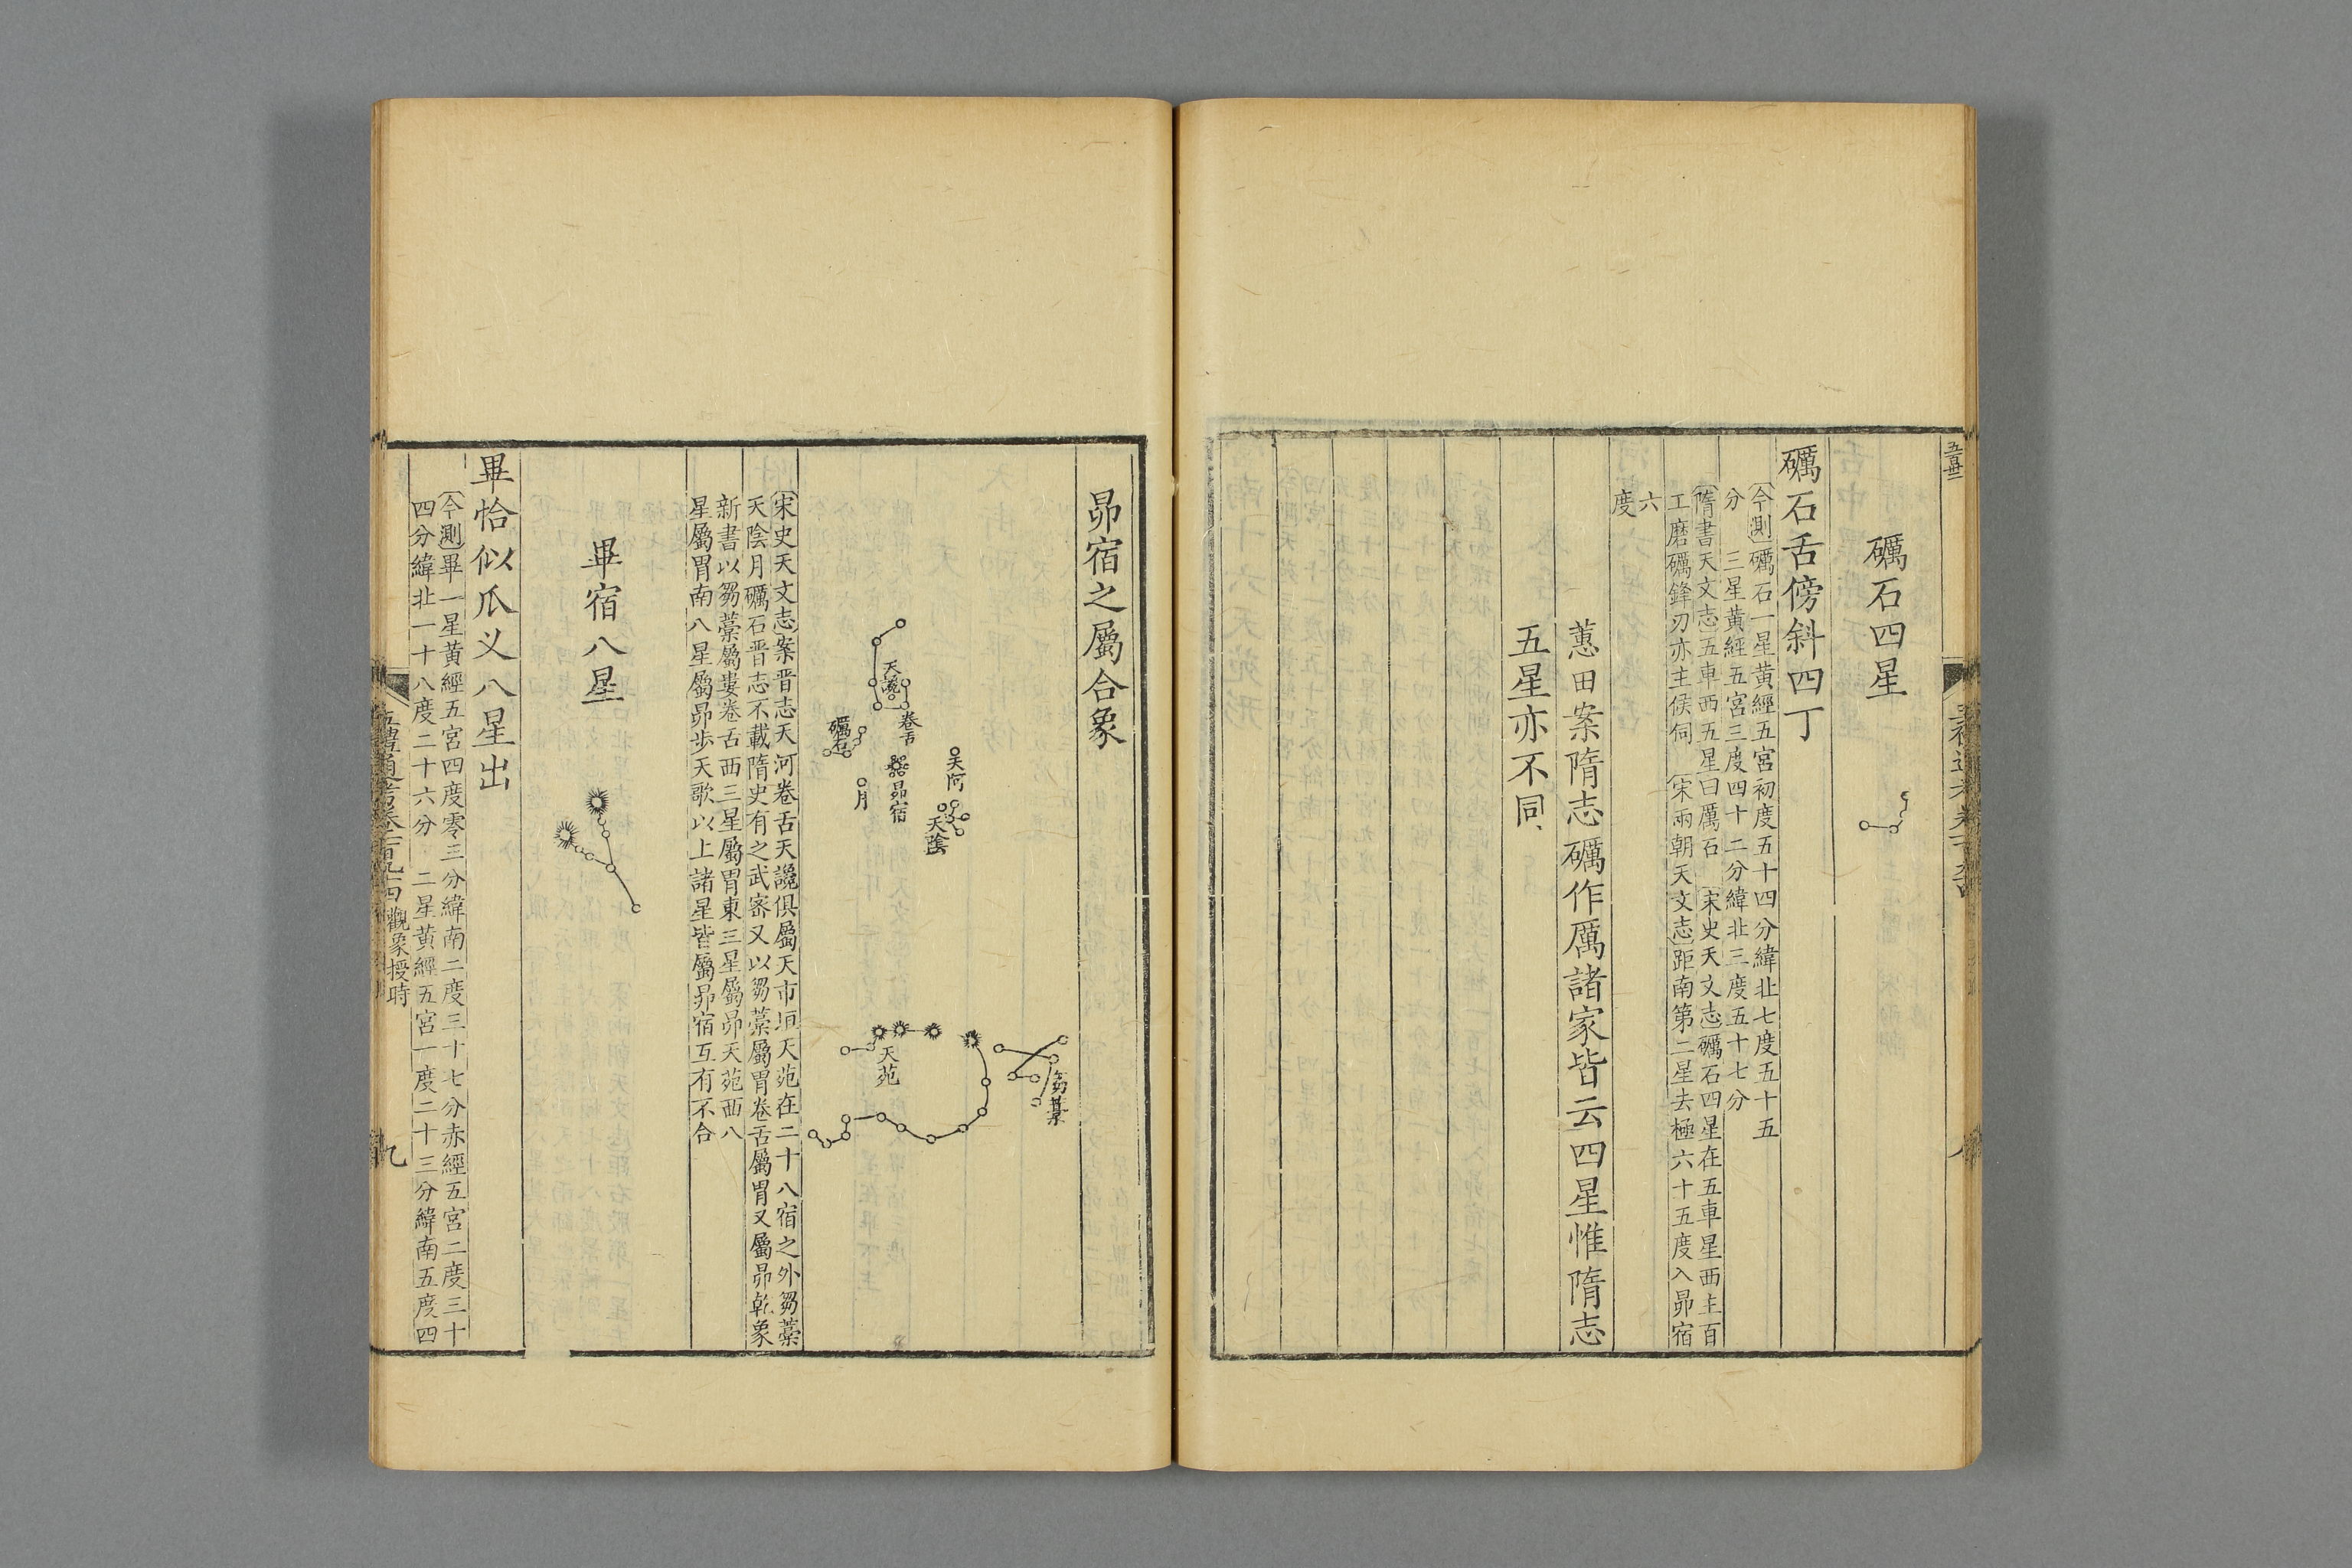 礪石四星
礪石舌傍斜四丁
今測礪石一星黃經五宮初度五十四分緯北七度五十五
分　三星黃經五宮三度四十二分緯北三度五十七分
隋書天文志五車西五星曰厲石　宋史天文志礪石四星在五車星西主百
工磨礪鋒刃亦主候伺　宋兩朝天文志距南第二星去極六十五度入昴宿
六
度
蕙田案隋志礪作厲諸家皆云四星惟隋志
五星亦不同
昴宿之屬合象
芻藁
天阿
天陰
卷舌
昴宿
天讒
天苑
月
礪石
宋史天文志案晋志天河卷舌天讒俱屬天市垣天苑在二十八宿之外芻藁
天陰月礪石晋志不載隋史有之武密又以芻藁屬胃卷舌屬胃又屬昴乾象
新書以芻藁屬婁卷舌西三星屬胃東三星屬昴天苑西八
星屬胃南八星屬昴步天歌以上諸星皆屬昴宿互有不合
畢宿八星
畢恰似爪义八星出
今測畢一星黃經五宮四度零三分緯南二度三十七分赤經五宮二度三十
四分緯北一十八度二十六分　二星黃經五宮一度二十三分緯南五度四
五禮通考卷一百九十四　觀象授時
九